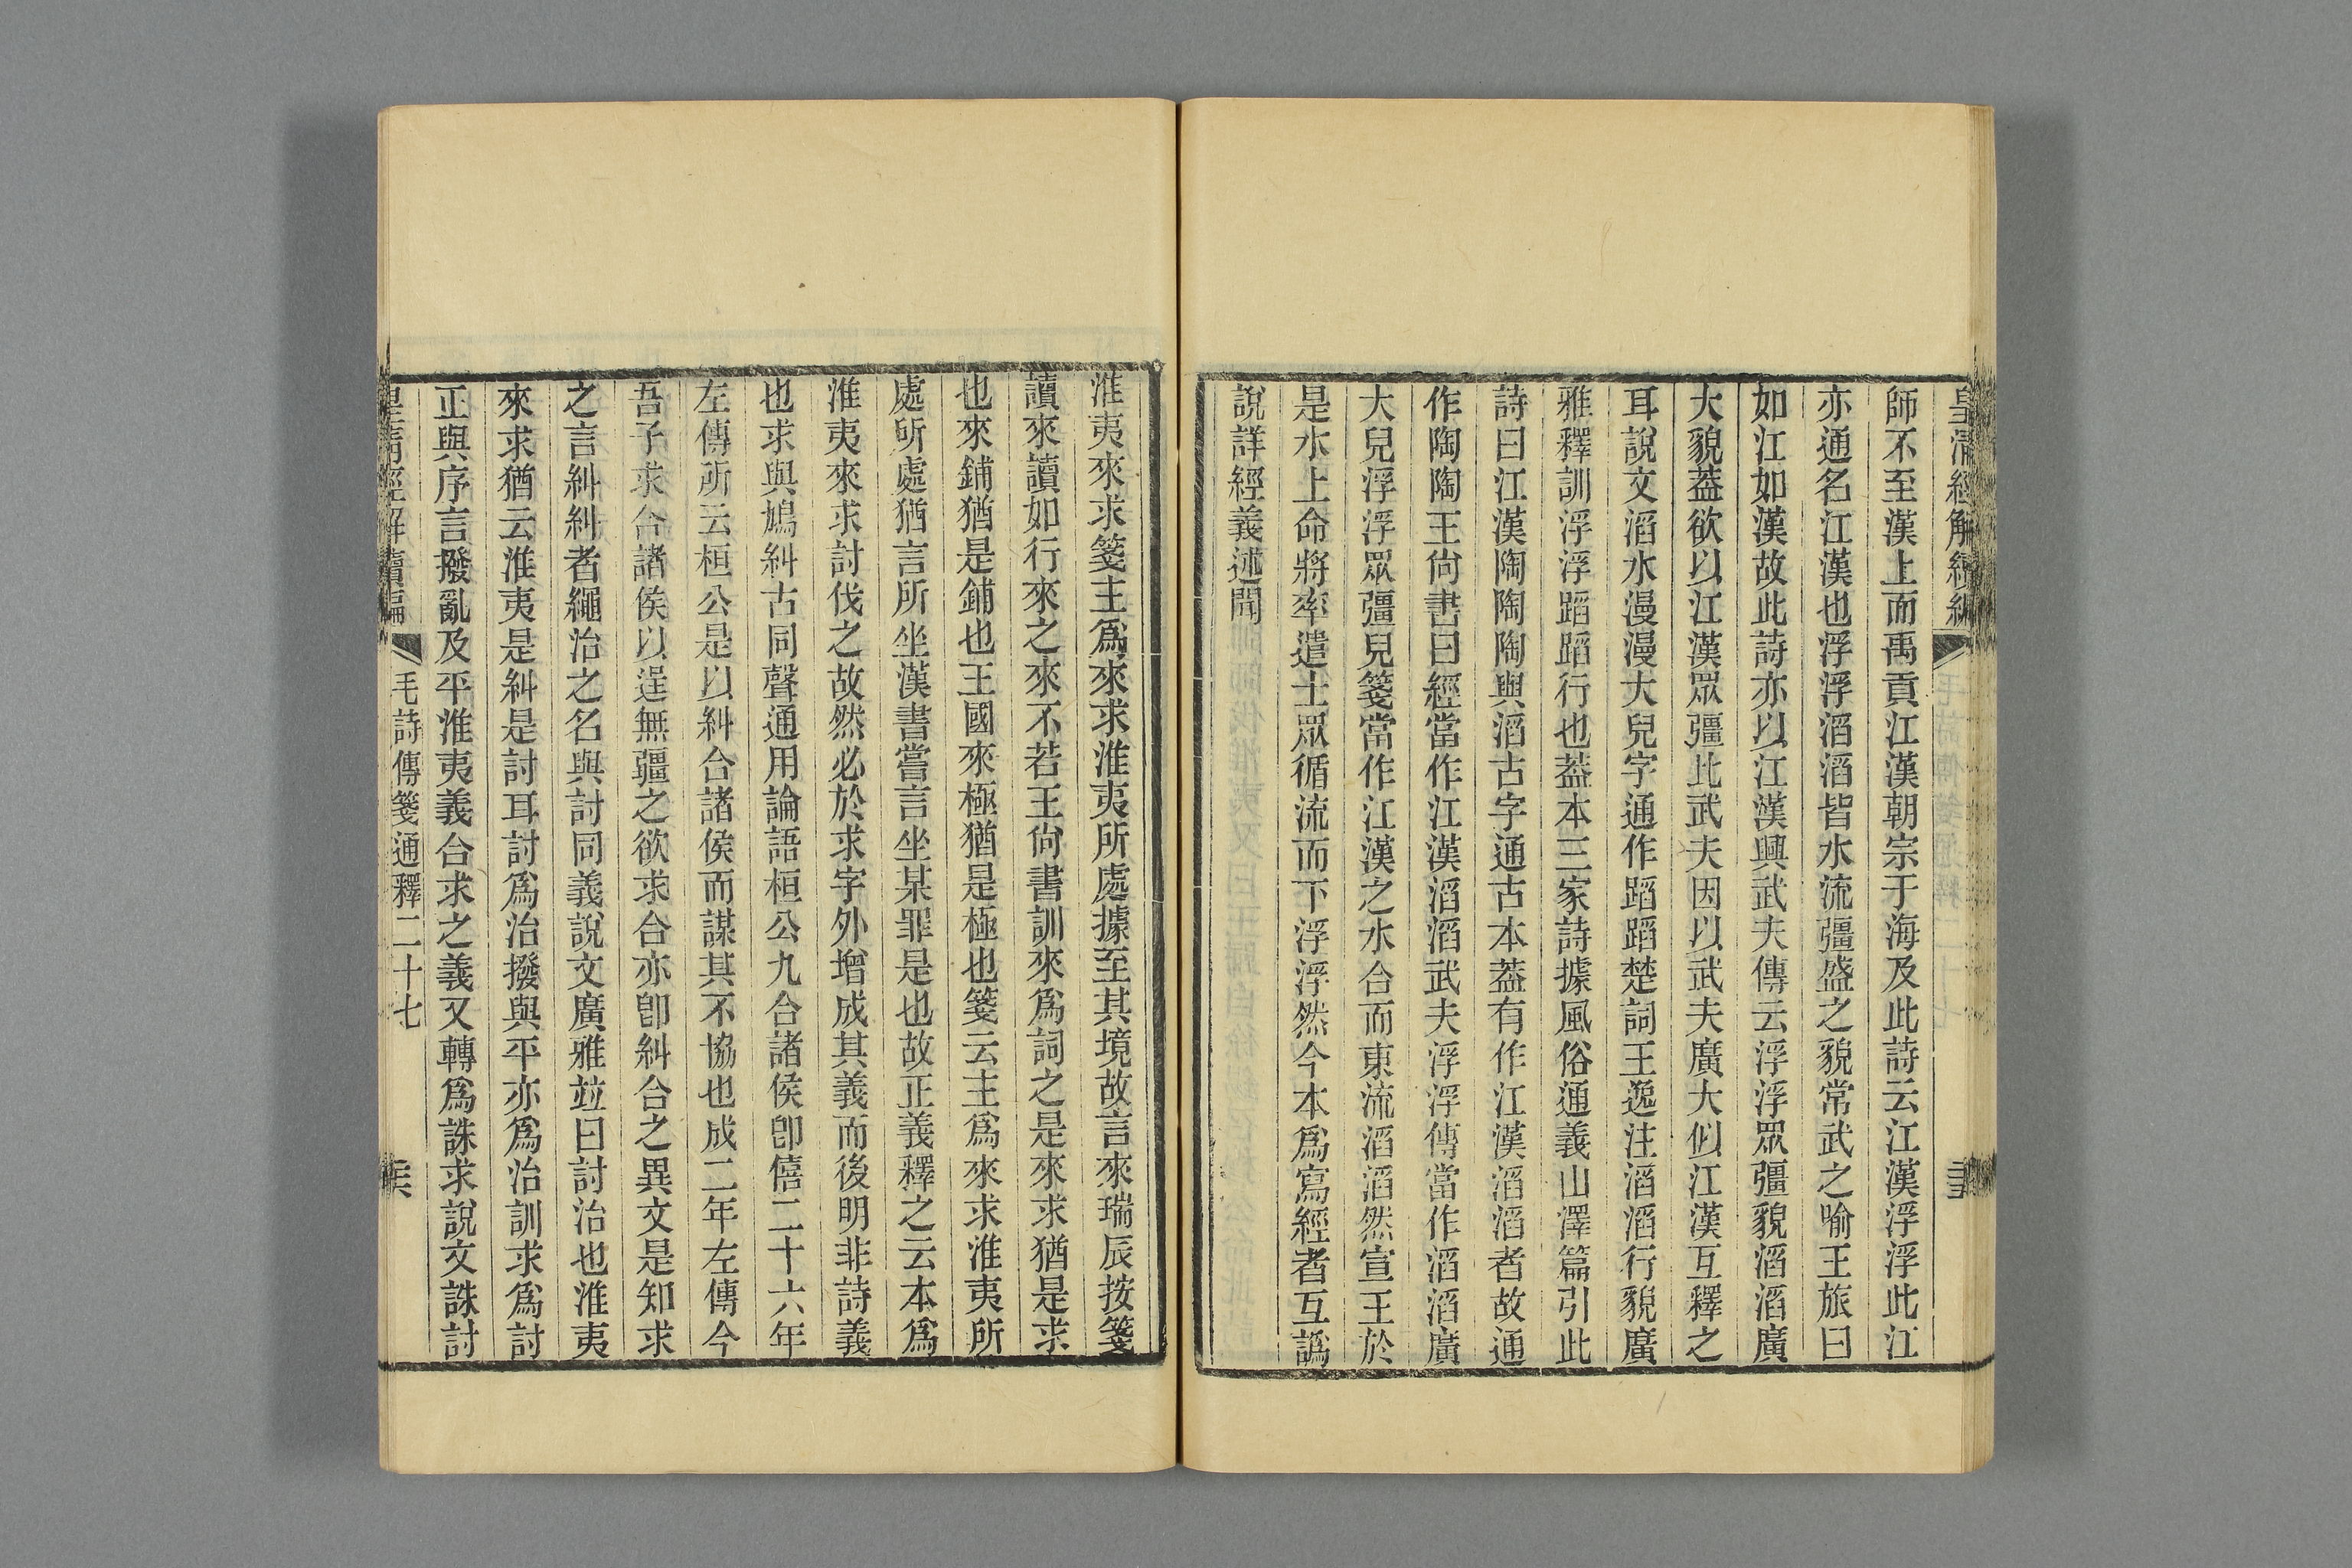 皇清經解續編
師不至漢上而禹貢江漢朝宗于海及此詩云江漢浮浮此江
亦通名江漢也浮浮滔滔皆水流彊盛之貌常武之喻王旅曰
如江如漢故此詩亦以江漢興武夫傳云浮浮眾彊貌滔滔廣
大貌葢欲以江漢眾彊比武夫因以武夫廣大似江漢互釋之
耳說文滔水漫漫大皃字通作蹈蹈楚詞王逸注滔滔行貌廣
雅釋訓浮浮蹈蹈行也葢本三家詩據風俗通義山澤篇引此
詩曰江漢陶陶陶與滔古字通古本葢有作江漢滔滔者故通
作陶陶王尙書曰經當作江漢滔滔武夫浮浮傳當作滔滔廣
大皃浮浮眾彊皃箋當作江漢之水合而東流滔滔然宣王於
是水上命將率遣士眾循流而下浮浮然今本爲寫經者互譌
說詳經義述聞
淮夷來求箋主爲來求淮夷所處據至其境故言來瑞辰按箋
讀來讀如行來之來不若王尙書訓來爲詞之是來求猶是求
也來鋪猶是鋪也王國來極猶是極也箋云主爲來求淮夷所
處所處猶言所坐漢書嘗言坐某罪是也故正義釋之云本爲
淮夷來求討伐之故然必於求字外增成其義而後明非詩義
也求與鳩糾古同聲通用論語桓公九合諸侯卽僖二十六年
左傳所云桓公是以糾合諸侯而謀其不協也成二年左傳今
吾子求合諸侯以逞無疆之欲求合亦卽糾合之異文是知求
之言糾糾者繩治之名與討同義說文廣雅竝曰討治也淮夷
來求猶云淮夷是糾是討耳討爲治撥與平亦爲治訓求爲討
正與序言撥亂及平淮夷義合求之義又轉爲誅求說文誅討
皇清經解續編 毛詩傳箋通釋二十七